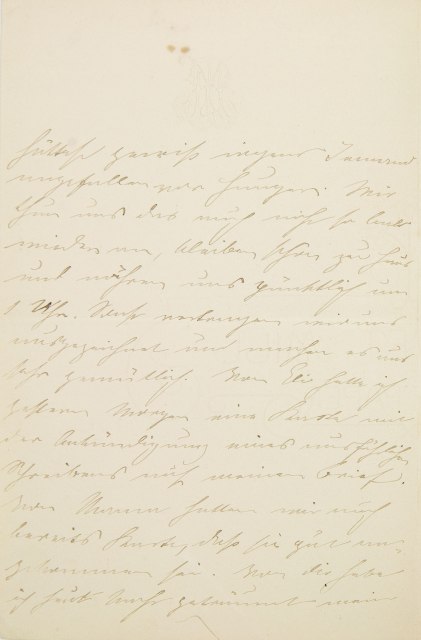 hättest gewiß irgend Jemand
angefallen vor Hunger. Wir
thun uns das auch nicht so bald
wieder an, bleiben schön zu Haus
und nähren uns pünktlich um
1 Uhr. Sonst vertragen wir uns
ausgezeichnet und machen es uns
sehr gemütlich. Von Dir hatte ich
gestern Morgen eine Karte mit
der Ankündigung eines ausführlichen
Schreibens auf meinen Brief.
Von Mama hatten wir auch
bereits Karte, daß sie gut an-
gekommen sei. Von Dir habe
ich heute Nacht geträumt mein